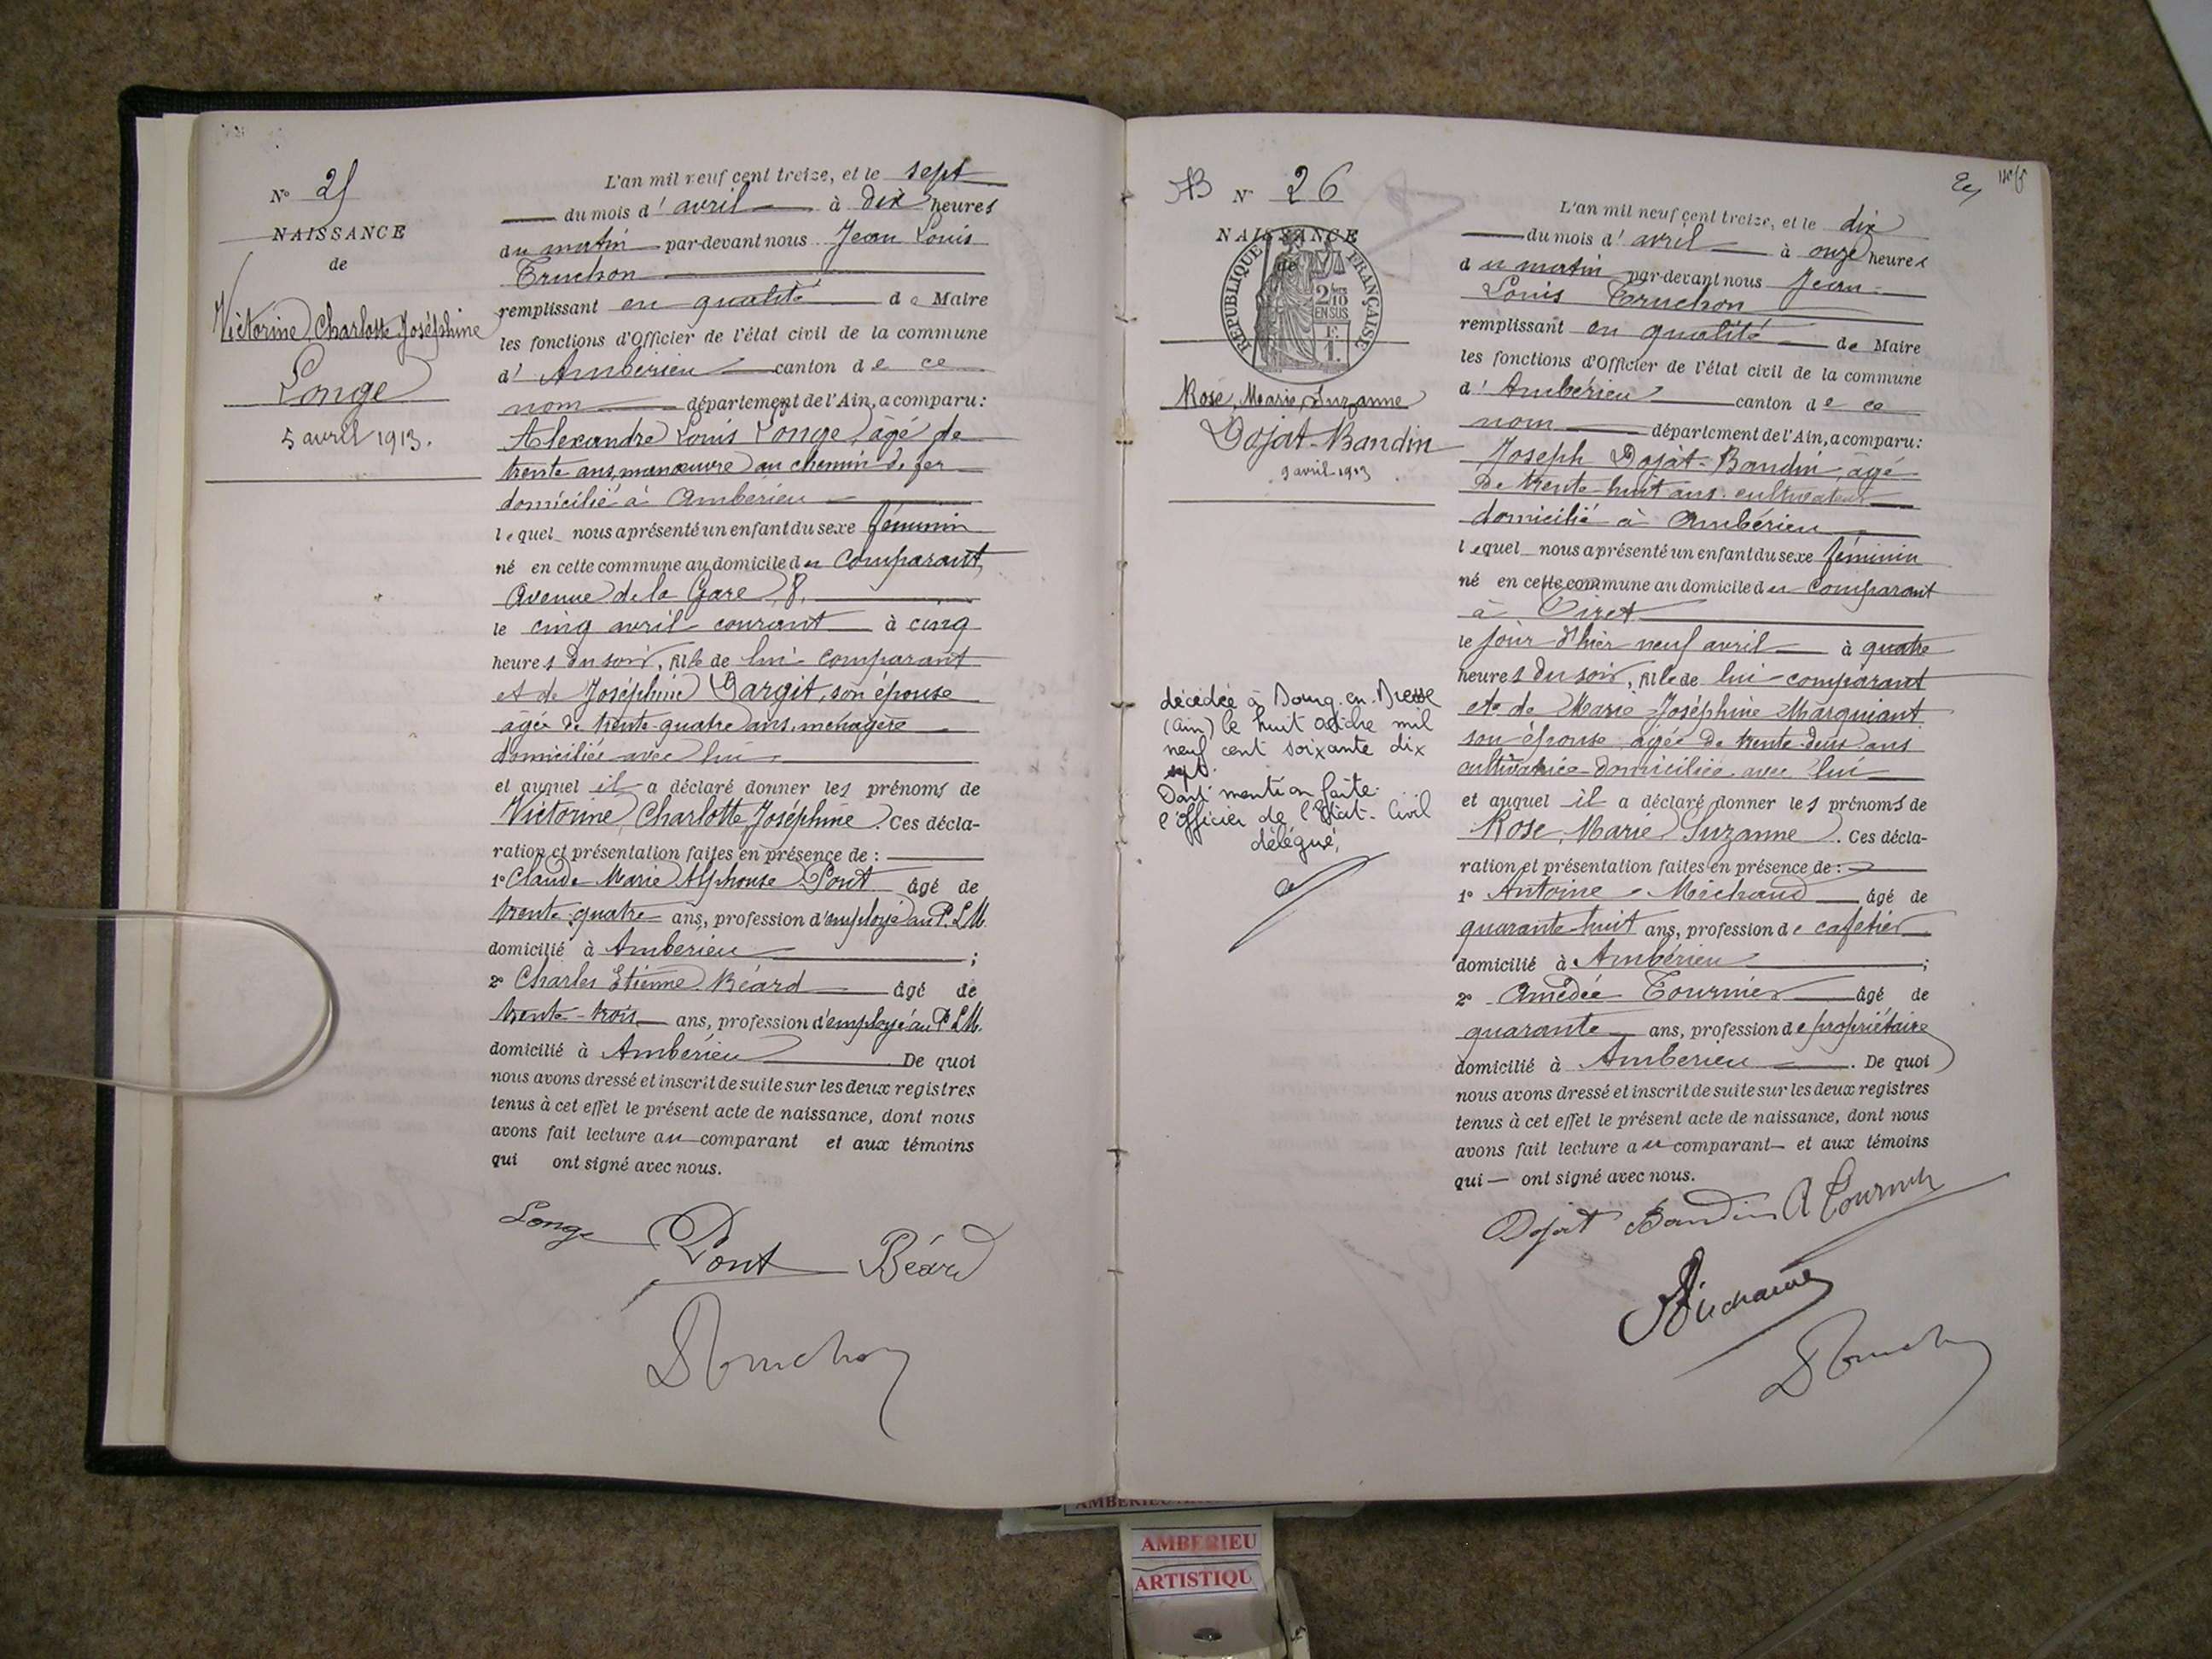 N° 25
NAISSANCE
de
Victorine, Charlotte Joséphine
Longe
5 avril 1913.
L'an mil neuf cent treize, et le sept
du mois d'avril à dix heures
du matin par-devant nous Jean Louis
Truchon
remplissant en qualité de Maire
les fonctions d'Officier de l'état civil de la commune
d'Ambérieu canton de ce
nom département de l'Ain, a comparu :
Alexandre Louis Longe, âgé de
trente ans, manœuvre au chemin de fer
domicilié à Ambérieu
lequel nous a présenté un enfant du sexe féminin
né en cette commune au domicile du comparant,
Avenue de la Gare, 8,
le cinq avril courant à cinq
heures du soir, fille de lui comparant
et de Joséphine Gargit, son épouse
âgée de trente-quatre ans, ménagère
domiciliée avec lui
et auquel il a déclaré donner les prénoms de
Victorine, Charlotte, Joséphine. Ces décla-
ration et présentation faites en présence de :
1° Claude Marie Alphonse Pont âgé de
trente-quatre ans, profession d'employé au P.L.M.
domicilié à Ambérieu ;
2° Charles Etienne Béard âgé de
trente-trois ans, profession d'employé au P.L.M.
domicilié à Ambérieu De quoi
nous avons dressé et inscrit de suite sur les deux registres
tenus à cet effet le présent acte de naissance, dont nous
avons fait lecture au comparant et aux témoins
qui ont signé avec nous.
Longe Pont Béard
Truchon
N° 26
NAISSANCE
de
RÉPUBLIQUE FRANÇAISE
2/10
EN SUS
1 F.
Rose, Marie, Suzanne
Dojat-Bandin
9 avril 1913
décédée à Bourg-en-Bresse
(Ain) le huit octobre mil
neuf cent soixante dix
sept.
Dont mention faite.
l'Officier de l'Etat-Civil
délégué,
L'an mil neuf cent treize, et le dix
du mois d'avril à onze heures
du matin par-devant nous Jean
Louis Truchon
remplissant en qualité de Maire
les fonctions d'Officier de l'état civil de la commune
d'Ambérieu canton de ce
nom département de l'Ain, a comparu :
Joseph Dojat-Bandin, âgé
de trente-huit ans, cultivateur
domicilié à Ambérieu
lequel nous a présenté un enfant du sexe féminin
né en cette commune au domicile du comparant
à Tiret
le jour d'hier neuf avril à quatre
heures du soir, fille de lui comparant
et de Marie Joséphine Marguiant
son épouse, âgée de trente-deux ans
cultivatrice domiciliée avec lui
et auquel il a déclaré donner les prénoms de
Rose, Marie, Suzanne. Ces décla-
ration et présentation faites en présence de :
1° Antoine Michaud âgé de
quarante-huit ans, profession de cafetier
domicilié à Ambérieu ;
2° Amédée Tournier âgé de
quarante ans, profession de propriétaire
domicilié à Ambérieu. De quoi
nous avons dressé et inscrit de suite sur les deux registres
tenus à cet effet le présent acte de naissance, dont nous
avons fait lecture au comparant et aux témoins
qui ont signé avec nous.
Dojat Bandin A Tournier
Michaud
Truchon
AMBERIEU
ARTISTIQU